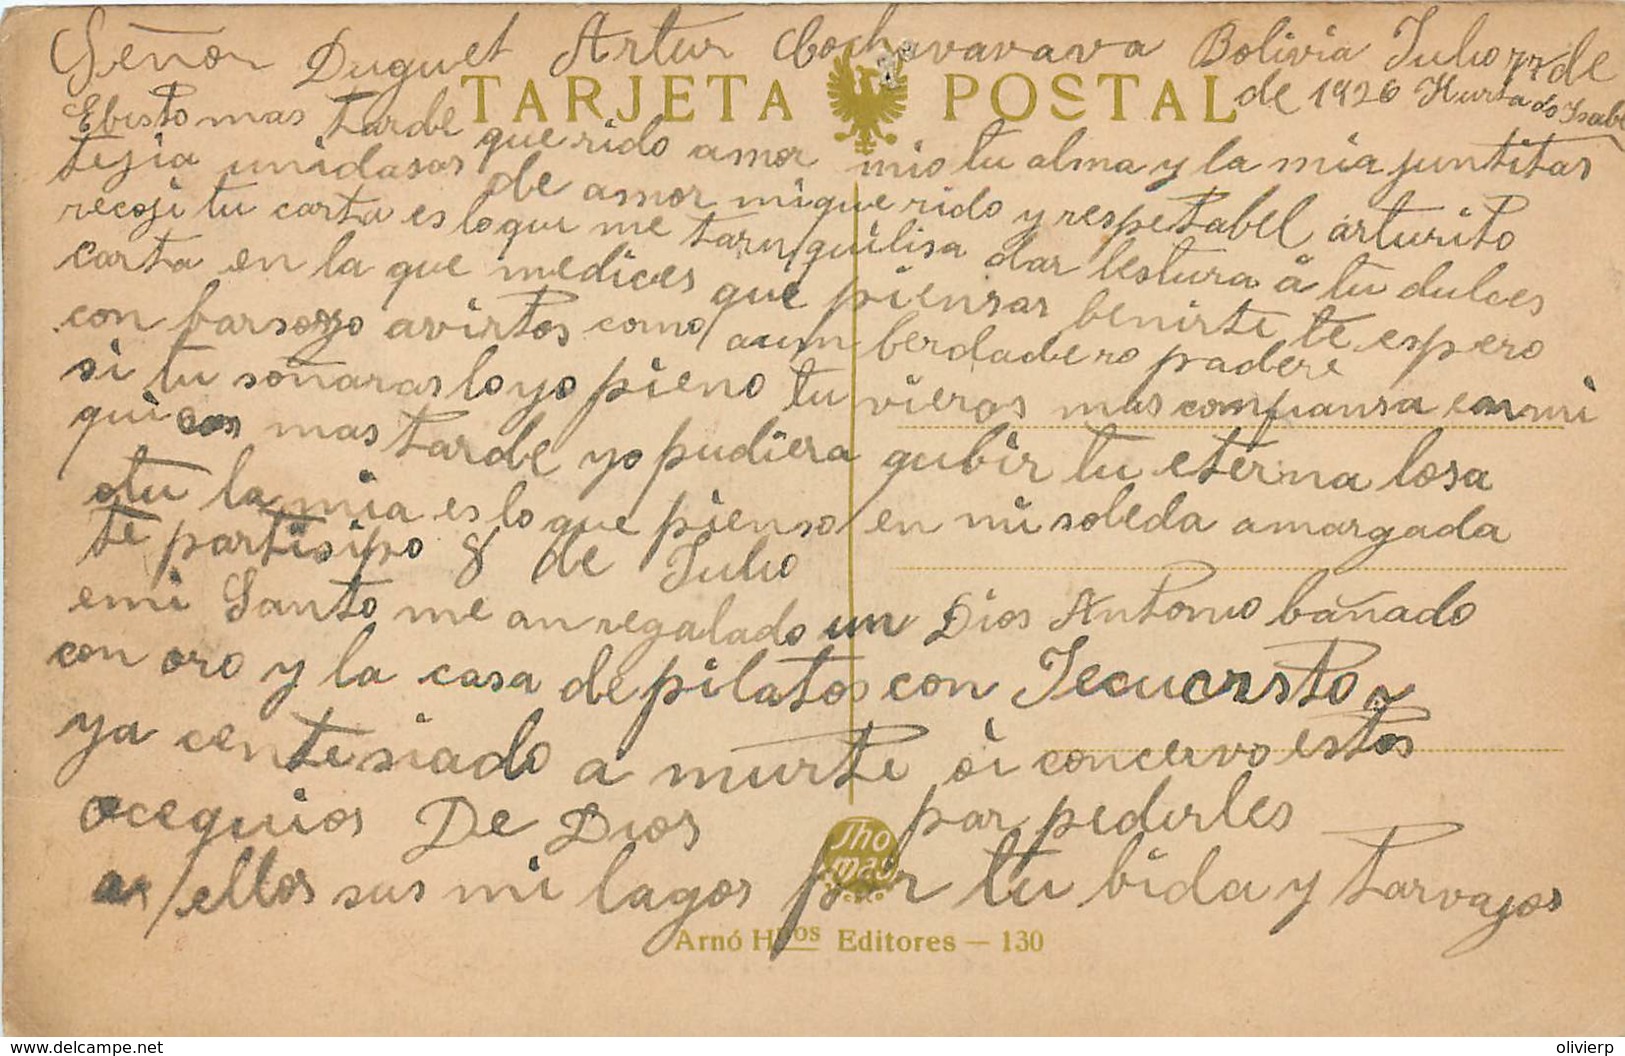 Señor Duguet Artur Cochavavava Bolivia Julio 77 de
TARJETA POSTAL
de 1926 Hurtado Isabel
Ebisto mas tarde querido amor mio tu alma y la mia juntitas
tejia unidasos de amor mi querido y respetabel arturito
recoji tu carta es loqui me tarnquilisa dar lestura á tu dulces
carta en la que medices que piensar benirte te espero
con barsozo avirtos como aum berdadero padere
si tu soñaras lo yo pieno tu vieras mas confiansa en mi
qui mas tarde yo pudiera gubir tu eterna losa
otu la mia es lo que pienso en mi soleda amargada
te partisipo 8 de Julio
emi Santo me an regalado un Dios Antonio bañado
con oro y la casa de pilatos con Jecucrsto
ya centesiado a murte oi concervo estos
oceguios De Dios par pedirles
a ellos sus mi lagos por tu bida y tarvajos
Thomas
Arnó Hnos Editores — 130
www.delcampe.net
olivierp